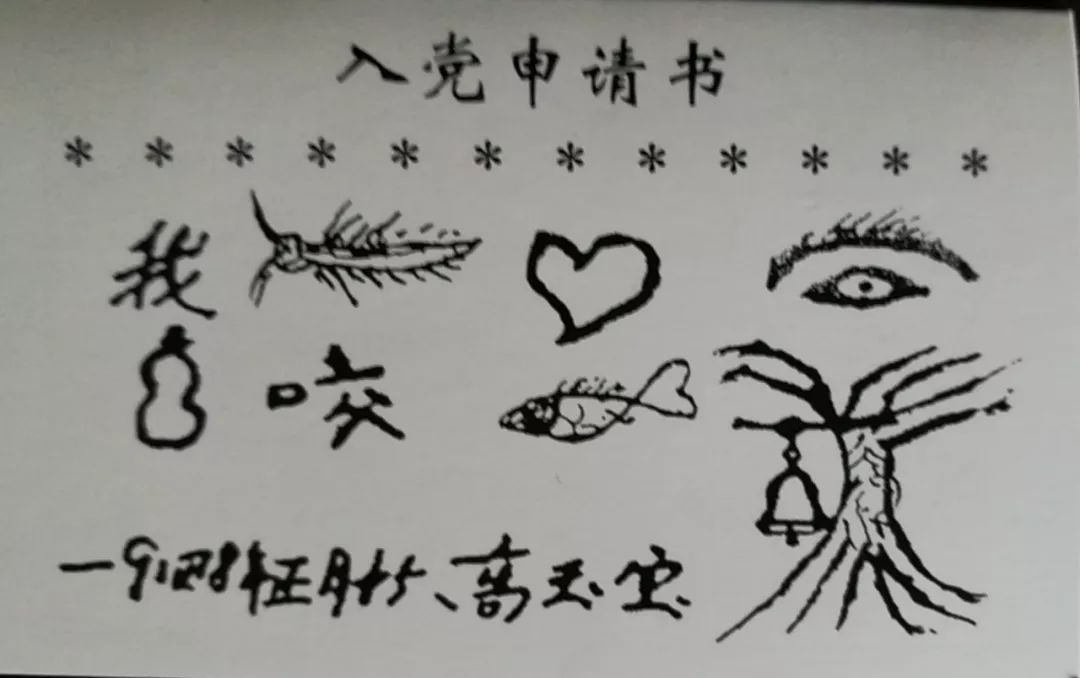 入党申请书
我
咬
一9四8年正月十5、高玉宝